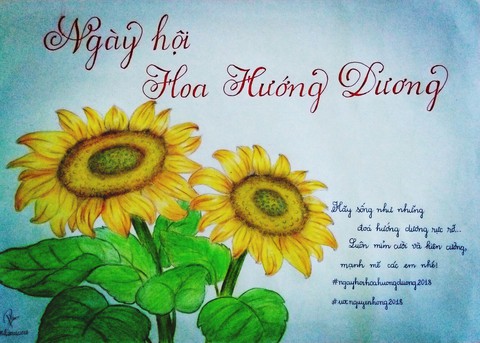 Ngày hội
Hoa Hướng Dương
Hãy sống như những
đoá hướng dương rực rỡ...
Luôn mỉm cười và kiên cường,
mạnh mẽ các em nhé!
#ngayhoihoahuongduong2018